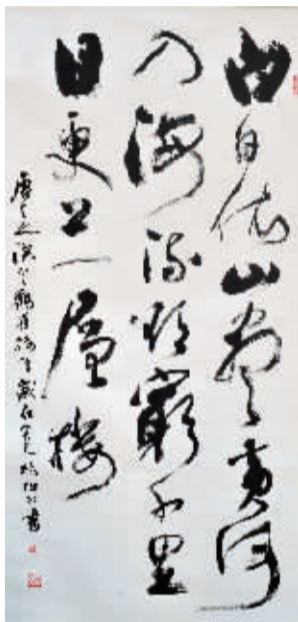 白日依山盡黃河
入海流欲窮千里
目更上一層樓
唐王之渙登鸛雀樓 歲在 書